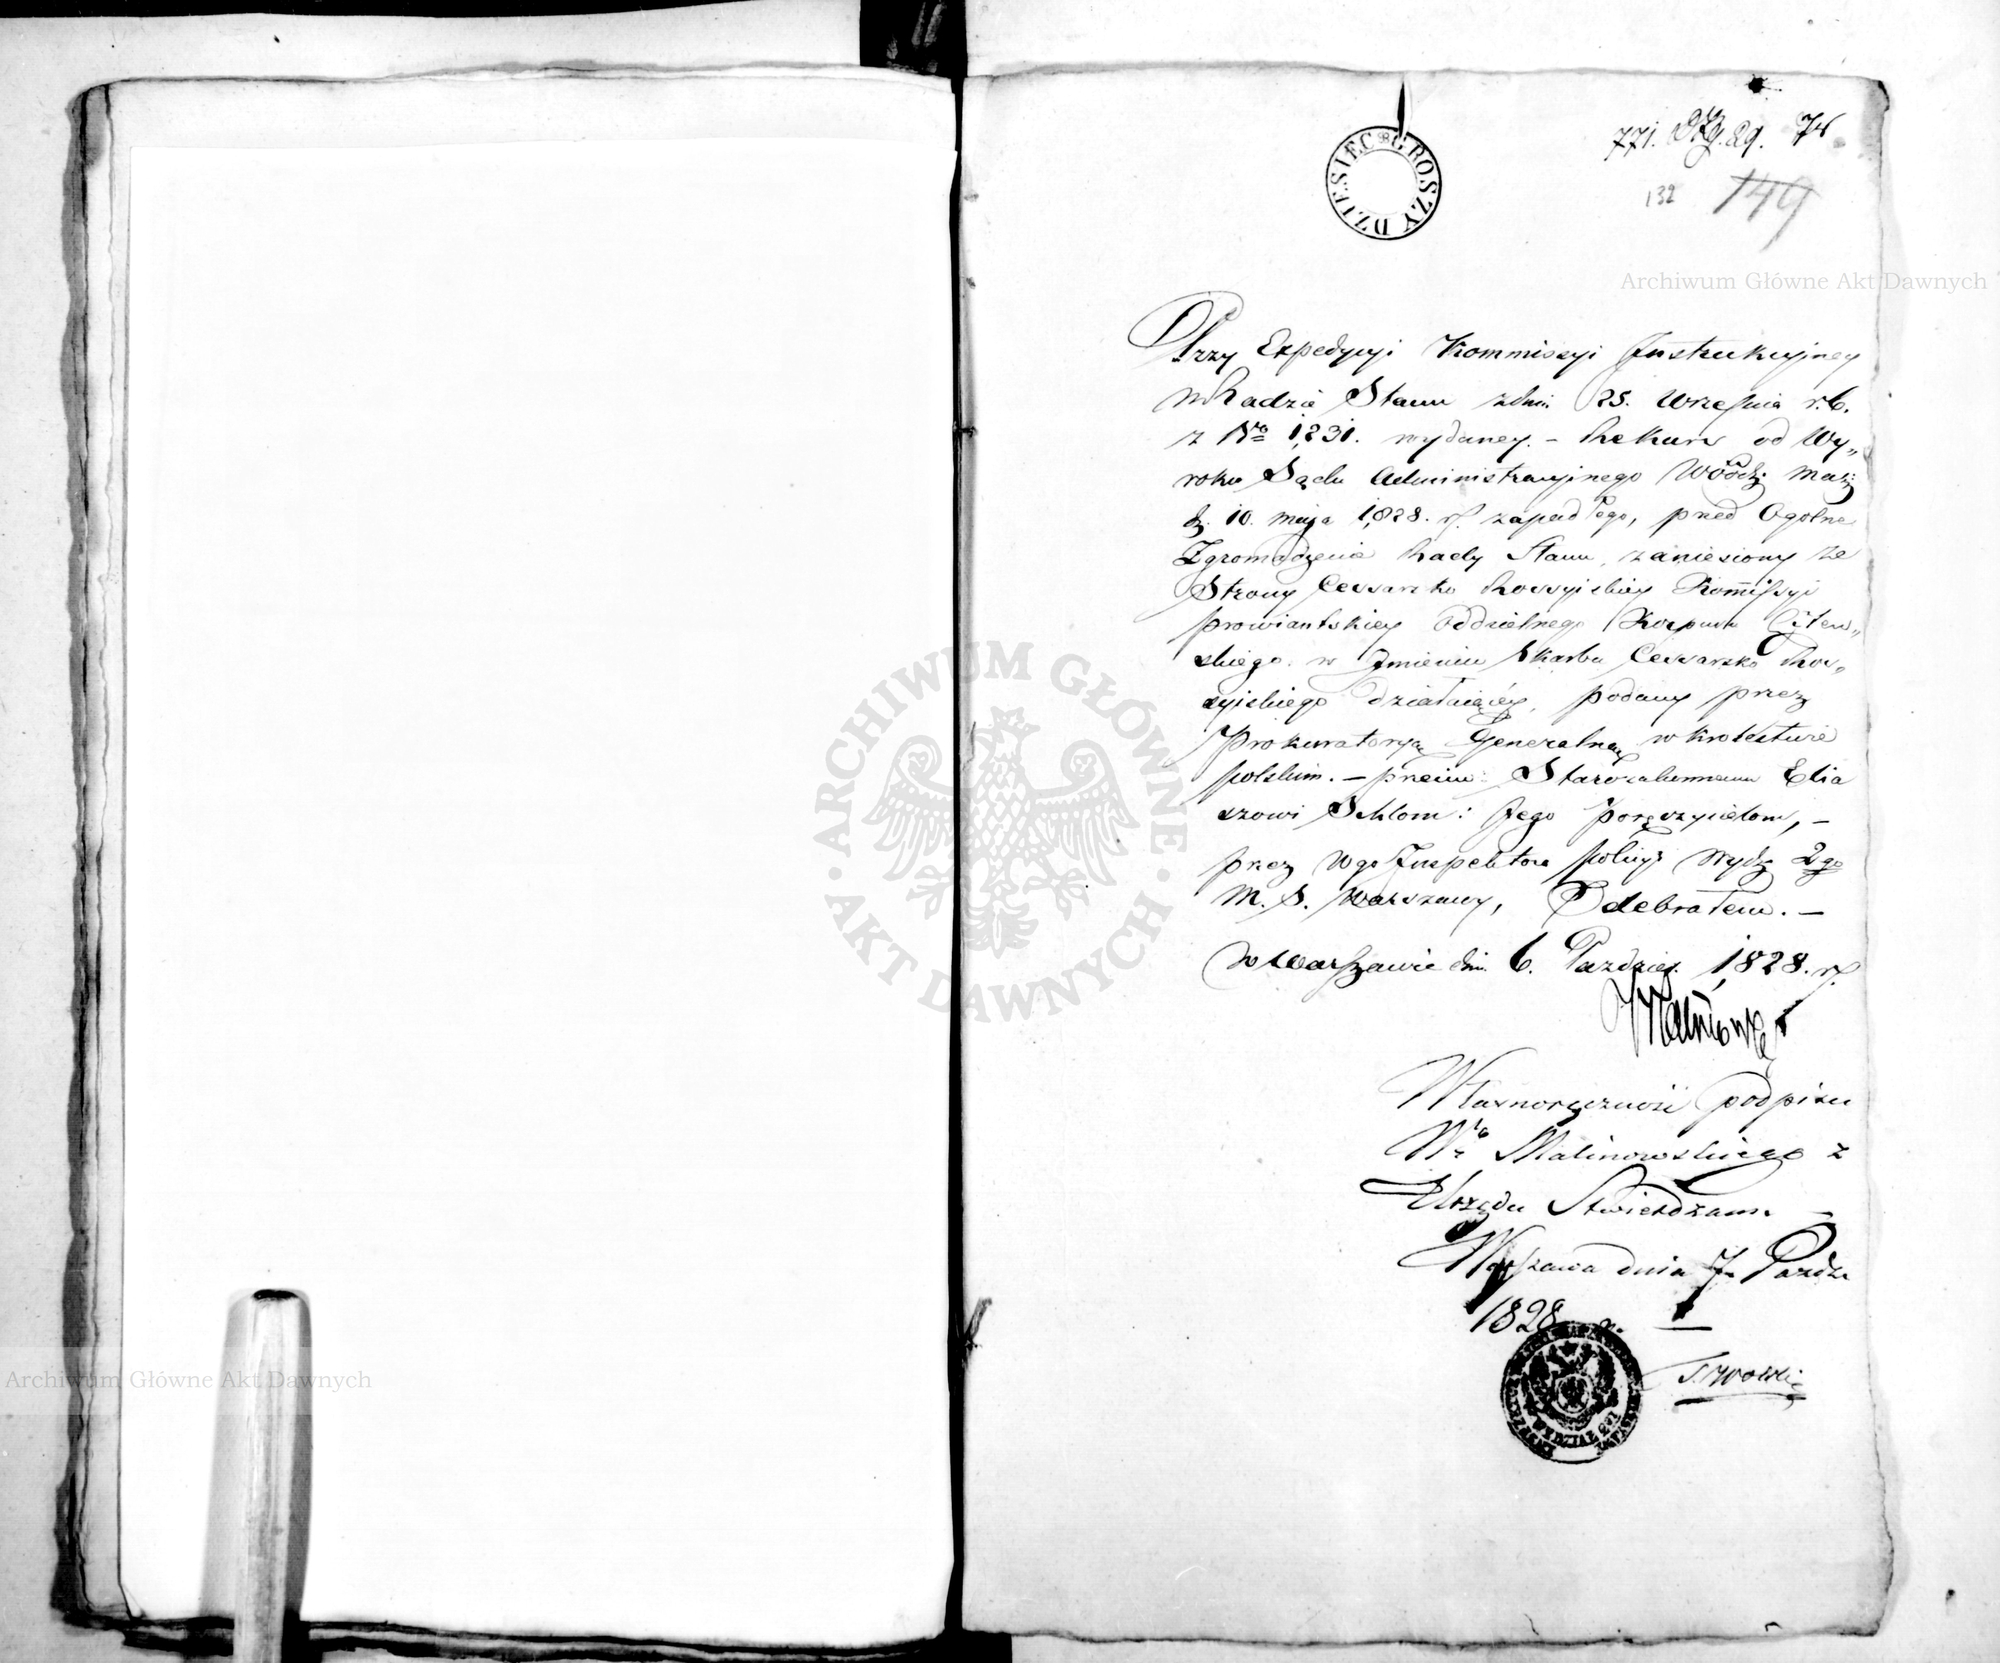 DZIESIĘC GROSZY
771. 29. 74
132 149
Archiwum Główne Akt Dawnych
Przy Expedycyi Kommissyi Instrukcyjney
w Radzie Stanu z dnia 25. Września r. b.
z Nro 1,231. wydaney. - Rekurs od Wy„
roku Sądu Administracyjnego Wdztj Maz:
d. 10. Maja 1,828. r. zapadłego, przed Ogolne
Zgromadzenie Rady Stanu, zaniesiony ze
Strony Cessarsko Rossyiskiey Kommissyi
Prowiantskiey oddzielnego Korpusu Litew„
skiego. w Imieniu Skarbu Cessarsko Ros„
syiskiego działaiącéy, podany przez
Prokuratoryą Generalną w Krolestwie
polskim. - przeciw: Starozakonnemu Elia
szowi Schlom: Jego Poręczycielom, -
przez Wgo Inspektora policyi Wydz 2go
M. S. Warszawy, Odebrałem. -
w Warszawie dn. 6. Pazdzier. 1,828. r.
Malinowski
Własnoręczność podpisu
Wgo Malinowskiego z
Urzędu Stwierdzam. -
Warszawa dnia 7. Pazdz
1828 r. -
WYDZIAŁ
ARCHIWUM GŁÓWNE · AKT DAWNYCH ·
Archiwum Główne Akt Dawnych